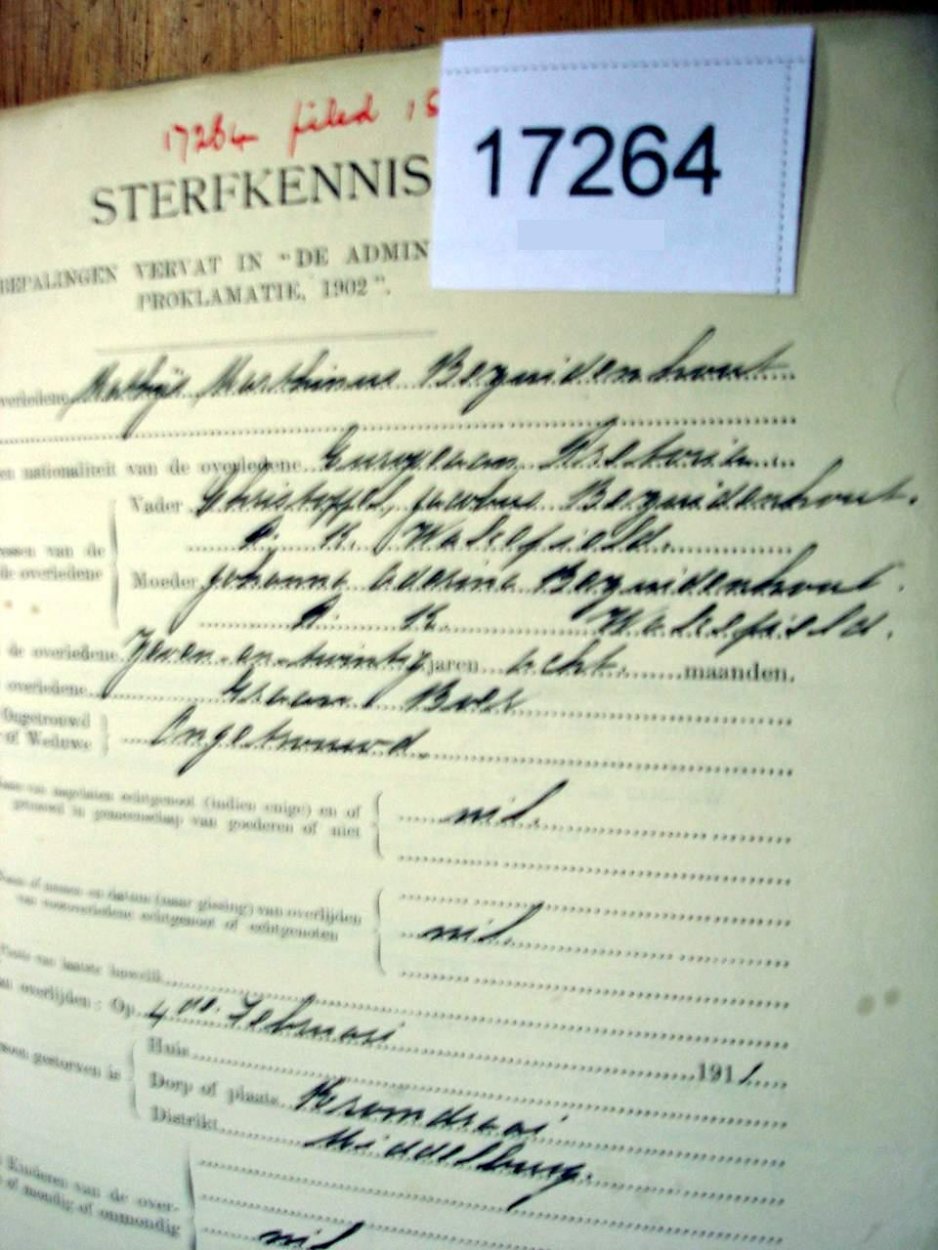 17264 filed 15
17264
STERFKENNIS
BEPALINGEN VERVAT IN "DE ADMIN
PROKLAMATIE, 1902".
overledene Mathijs Marthinus Bezuidenhout
en nationaliteit van de overledene European Pretoria
Vader Christoffel Jacobus Bezuidenhout.
P. K. Wakefield.
essen van de
de overledene
Moeder Johanna Bezuidenhout.
P. K. Wakefield.
de overledene Zeven en twintig jaren acht maanden.
overledene Graan Boer
Ongetrouwd
of Weduwe
Ongetrouwd
nagelaten echtgenoot (indien enige) en of
getrouwd in gemeenschap van goederen of niet
nil.
Naam of namen en datum (naar gissing) van overlijden
van vooroverledene echtgenoot of echtgenoten
nil.
van laatste huwelik
van overlijden: Op 4de Februari 1911
Huis
soon gestorven is
Dorp of plaats Kromdraai
Distrikt Middelburg.
Kinderen van de over-
of mondig of onmondig
nil